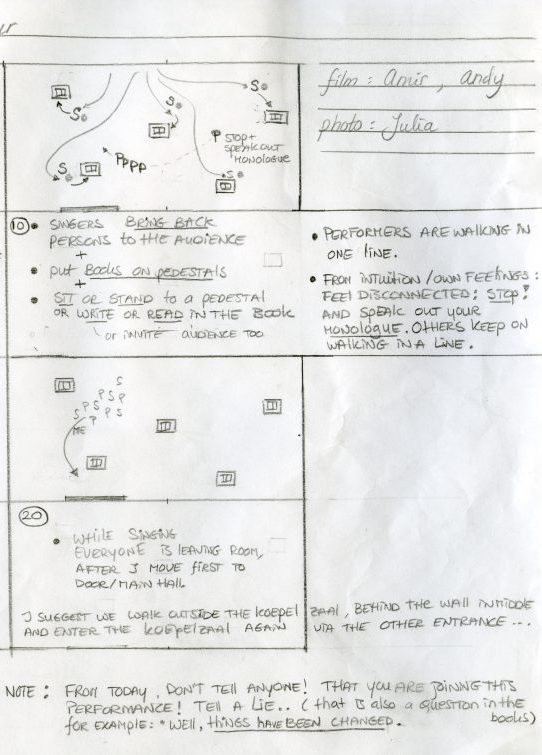 film : Amir , Andy
photo : Julia
S
S
S
S
S
PPPP
P STOP+
SPEAK OUT
MONOLOGUE
10
• SINGERS BRING BACK
PERSONS to the AUDIENCE
+
• put BOOKS ON PEDESTALS
+
• SIT OR STAND to a PEDESTAL
OR WRITE OR READ IN THE BOOK
or INVITE AUDIENCE TOO
• PERFORMERS ARE WALKING IN
ONE LINE.
• FROM INTUITION / OWN FEELINGS :
FEEL DISCONNECTED; STOP!
AND SPEAK OUT YOUR
MONOLOGUE. OTHERS KEEP ON
WALKING IN A LINE.
S
P S P
S P S P
S P P S
ME
20
• WHILE SINGING
EVERYONE IS LEAVING ROOM,
AFTER I MOVE FIRST TO
DOOR/MAIN HALL.
I SUGGEST WE WALK OUTSIDE THE KOEPEL ZAAL, BEHIND THE WALL IN MIDDLE
AND ENTER THE KOEPELZAAL AGAIN VIA THE OTHER ENTRANCE ...
NOTE : FROM TODAY, DON'T TELL ANYONE! THAT YOU ARE JOINNG THIS
PERFORMANCE! TELL A LIE.. (that is also a question in the
for EXAMPLE: "WELL, tHINGS HAVE BEEN CHANGED. books)